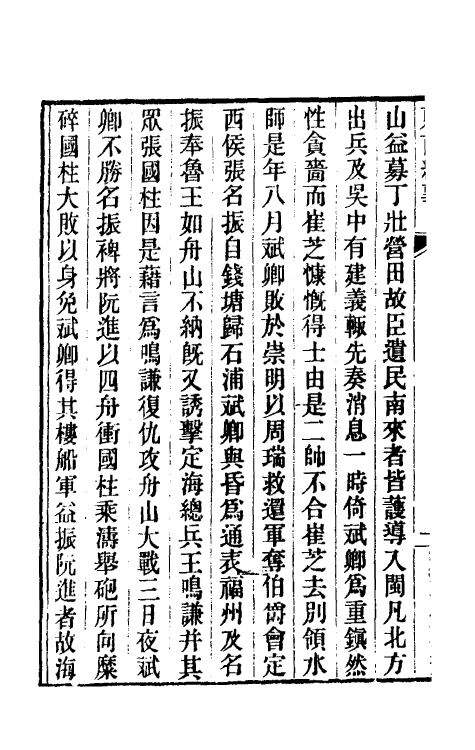 山益募丁壯營田故臣遺民南來者皆護導入閩凡北方
出兵及吳中有建義輙先奏消息一時倚斌卿爲重鎮然
性貪嗇而崔芝慷慨得士由是二帥不合崔芝去別領水
師是年八月斌卿敗於崇明以周瑞救還軍奪伯爵會定
西侯張名振自錢塘歸石浦斌卿與昏爲通表福州及名
振奉魯王如舟山不納旣又誘擊定海總兵王鳴謙并其
眾張國柱因是藉言爲鳴謙復仇攻舟山大戰三日夜斌
卿不勝名振裨將阮進以四舟衝國柱乘濤舉砲所向糜
碎國柱大敗以身免斌卿得其樓船軍益振阮進者故海